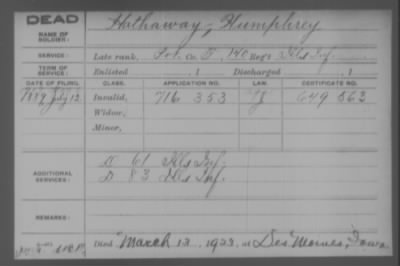 DEAD
NAME OF SOLDIER: Hathaway, Humphrey
SERVICE: Late rank, Co. F, 140 Reg't Ills Inf.
TERM OF SERVICE: Enlisted , 1 Discharged , 1
DATE OF FILING. CLASS. APPLICATION NO. LAW. CERTIFICATE NO.
1889 July 12 Invalid, 716 353 649 563
Widow,
Minor,
ADDITIONAL SERVICES: D 61 Ills Inf.
D 83 Ills Inf.
REMARKS:
Died March 12, 1922, at Des Moines, Iowa